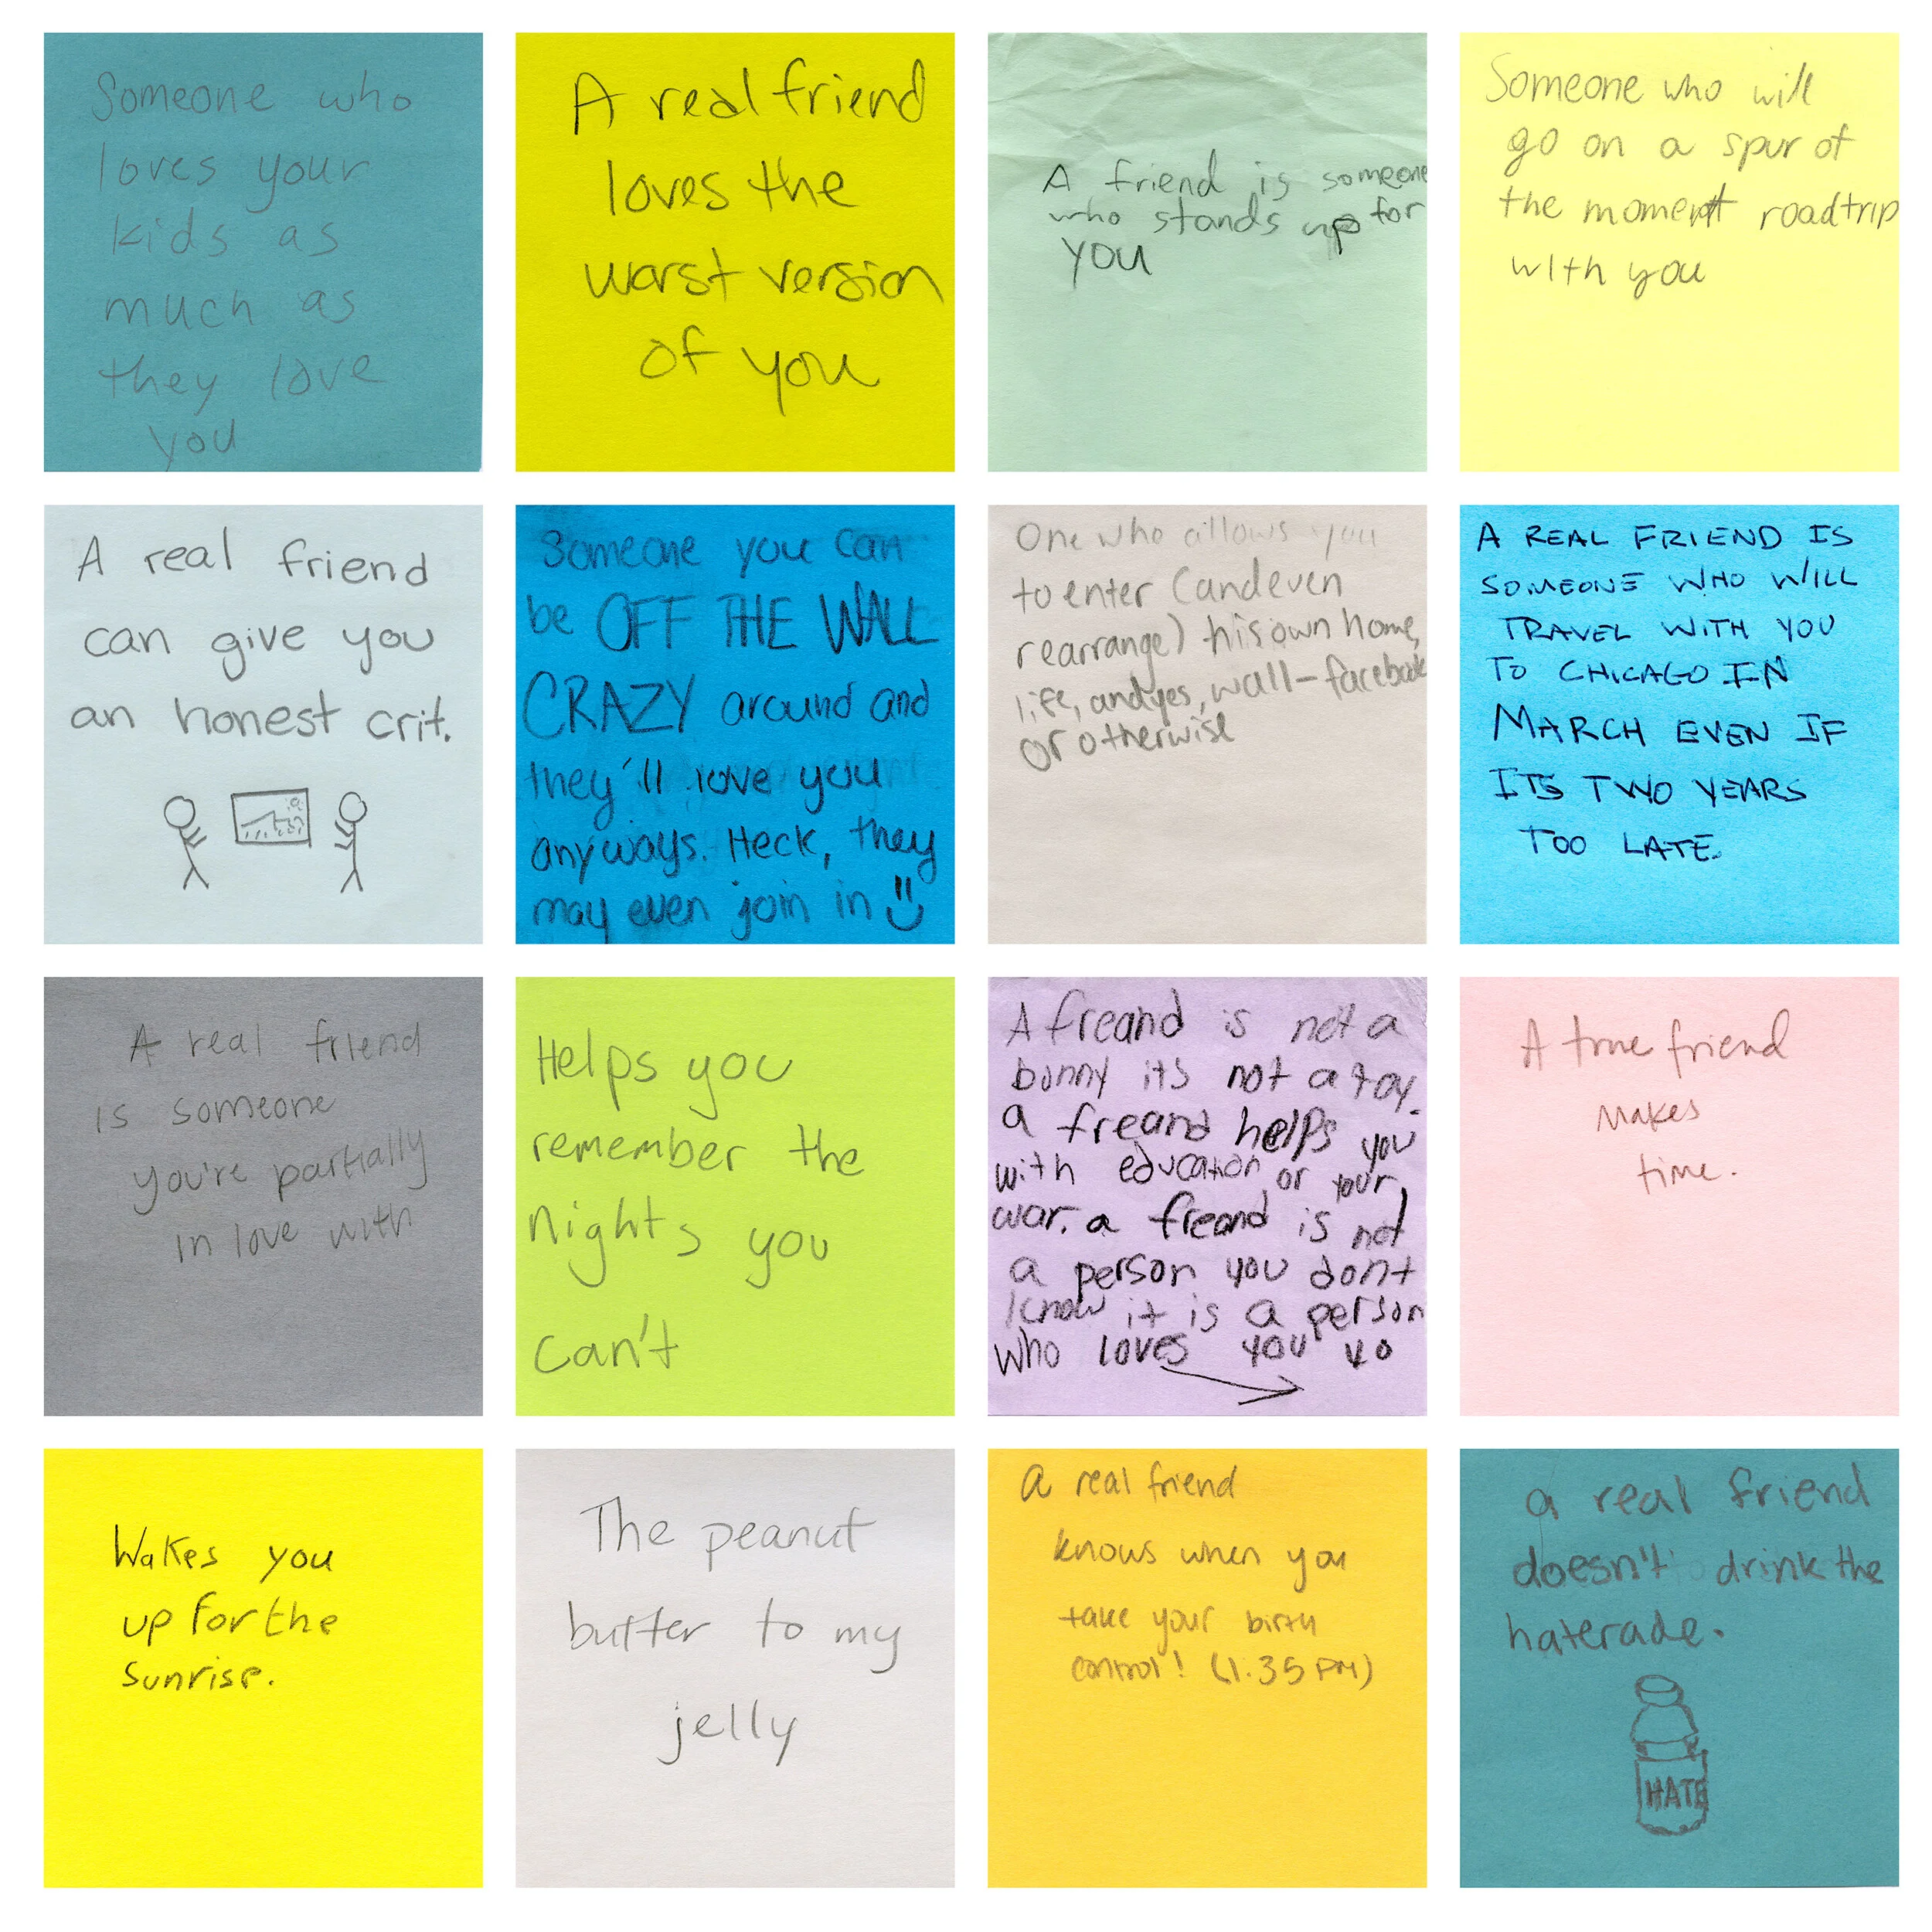 Someone who
loves your
kids as
much as
they love
you
A real friend
loves the
worst version
of you
A friend is someone
who stands up for
YOU
Someone who will
go on a spur of
the moment roadtrip
with you
A real friend
can give you
an honest crit.
Someone you can
be OFF THE WALL
CRAZY around and
they'll love you
anyways. Heck, they
may even join in
One who allows you
to enter (and even
rearrange) his own home,
life, and yes, wall-facebook
or otherwise
A REAL FRIEND IS
SOMEONE WHO WILL
TRAVEL WITH YOU
TO CHICAGO IN
MARCH EVEN IF
ITS TWO YEARS
TOO LATE.
A real friend
is someone
you're partially
in love with
Helps you
remember the
nights you
can't
A freand is not a
bunny its not a toy.
a freand helps you
with education or your
war. a freand is not
a person you dont
know it is a person
who loves you yo
A true friend
makes
time.
Wakes you
up for the
sunrise.
The peanut
butter to my
jelly
A real friend
knows when you
take your birth
control! (1:35 PM)
a real friend
doesn't drink the
haterade.
HATE